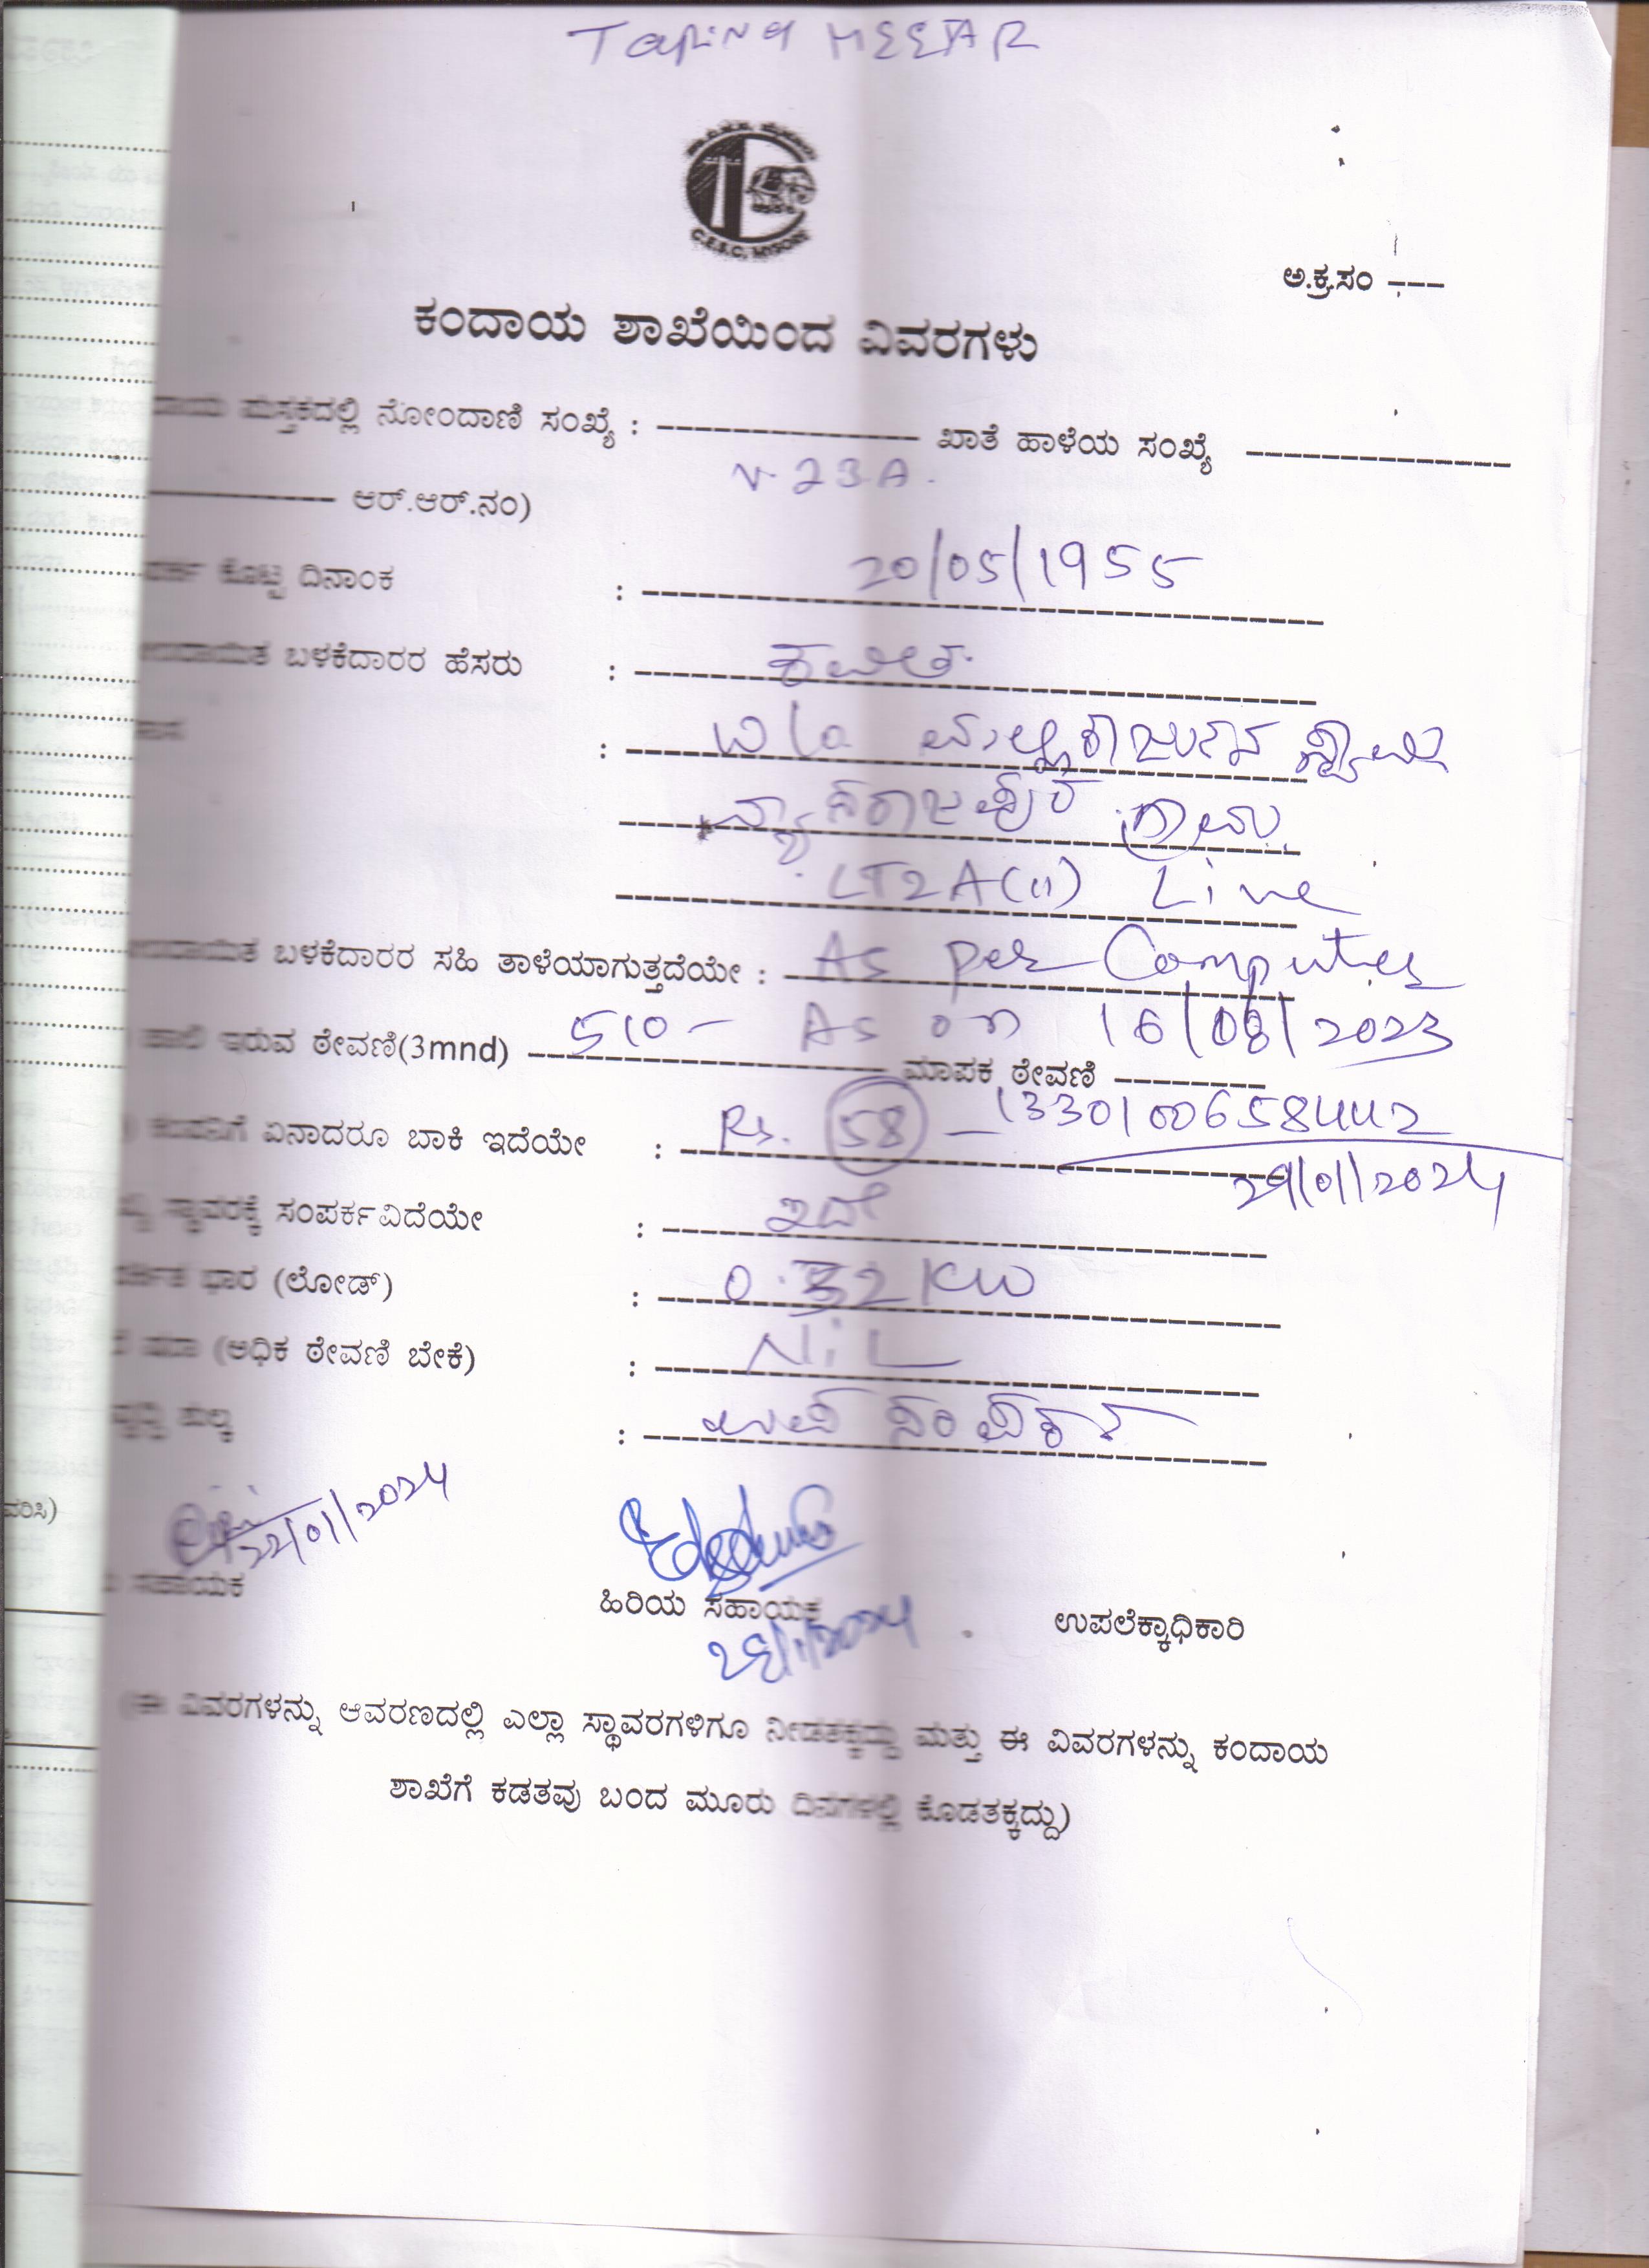 Taping MEETAR
C.E.S.C, MYSORE
ಅ.ಕ್ರ.ಸಂ ----
ಕಂದಾಯ ಶಾಖೆಯಿಂದ ವಿವರಗಳು
ಪುಸ್ತಕದಲ್ಲಿ ನೋಂದಾಣಿ ಸಂಖ್ಯೆ : -------------- ಖಾತೆ ಹಾಳೆಯ ಸಂಖ್ಯೆ --------------
---------- ಆರ್.ಆರ್.ನಂ) V-23A.
ಕೊಟ್ಟ ದಿನಾಂಕ : 20/05/1955
ಬಳಕೆದಾರರ ಹೆಸರು : ಕವಿತ
: W/o ಮಲ್ಲಿಕಾರ್ಜುನ ಸ್ವಾಮಿ
ಗ್ರಾಮ
LT2A(ii) Live
ಬಳಕೆದಾರರ ಸಹಿ ತಾಳೆಯಾಗುತ್ತದೆಯೇ : As per Computer
ಹಾಲಿ ಇರುವ ಠೇವಣಿ(3mnd) 510- As on 16/08/2023
ಮಾಪಕ ಠೇವಣಿ --------
ಏನಾದರೂ ಬಾಕಿ ಇದೆಯೇ : Rs. 58 - 1330100658442
29/01/2024
ಸ್ಥಾವರಕ್ಕೆ ಸಂಪರ್ಕವಿದೆಯೇ : ಇದೆ
ಭಾರ (ಲೋಡ್) : 0.32 KW
(ಅಧಿಕ ಠೇವಣಿ ಬೇಕೆ) : NiL
ಶುಲ್ಕ :
ವರಿಸಿ)
22/01/2024
ಸಹಾಯಕ
ಹಿರಿಯ ಸಹಾಯಕ
ಉಪಲೆಕ್ಕಾಧಿಕಾರಿ
(ಈ ವಿವರಗಳನ್ನು ಆವರಣದಲ್ಲಿ ಎಲ್ಲಾ ಸ್ಥಾವರಗಳಿಗೂ ನೀಡತಕ್ಕದ್ದು ಮತ್ತು ಈ ವಿವರಗಳನ್ನು ಕಂದಾಯ
ಶಾಖೆಗೆ ಕಡತವು ಬಂದ ಮೂರು ದಿನಗಳಲ್ಲಿ ಕೊಡತಕ್ಕದ್ದು)